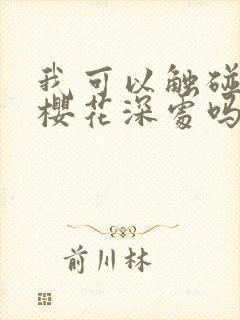 我可以触碰
樱花深处吗
前川林